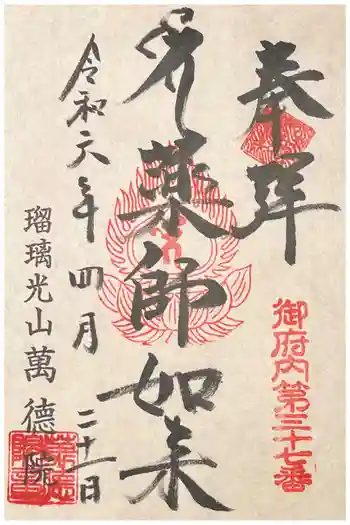 奉拝
御府内第三十七番
薬師如来
令和六年四月二十一日
瑠璃光山萬徳院